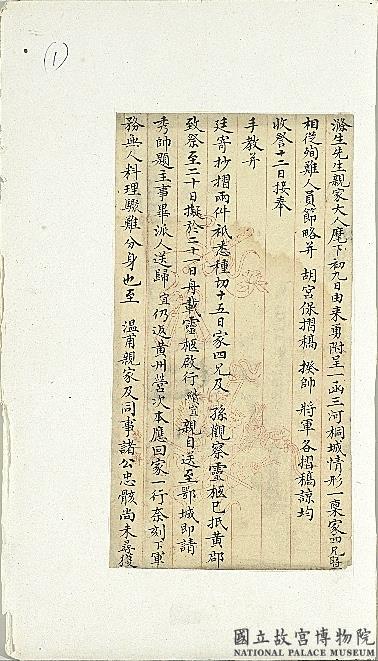 (1)
滌生先生親家大人麾下初九日由來勇附呈一函三河桐城情形一稟家四兄暨
相從殉難人員節略并 胡宮保摺稿 揆帥 將軍各摺稿諒均
收詧十二日接奉
手教并
廷寄抄摺兩件祇悉種切十五日家四兄及 孫觀察靈柩已抵黃郡
致祭至二十日擬於二十一日舟載靈柩啟行 宜親自送至鄂城即請
秀帥題主事畢派人送歸宜仍返黃州營次本應回家一行奈刻下軍
務無人料理驟難分身也至 溫甫親家及同事諸公忠骸尚未尋獲
國立故宮博物院
NATIONAL PALACE MUSEUM